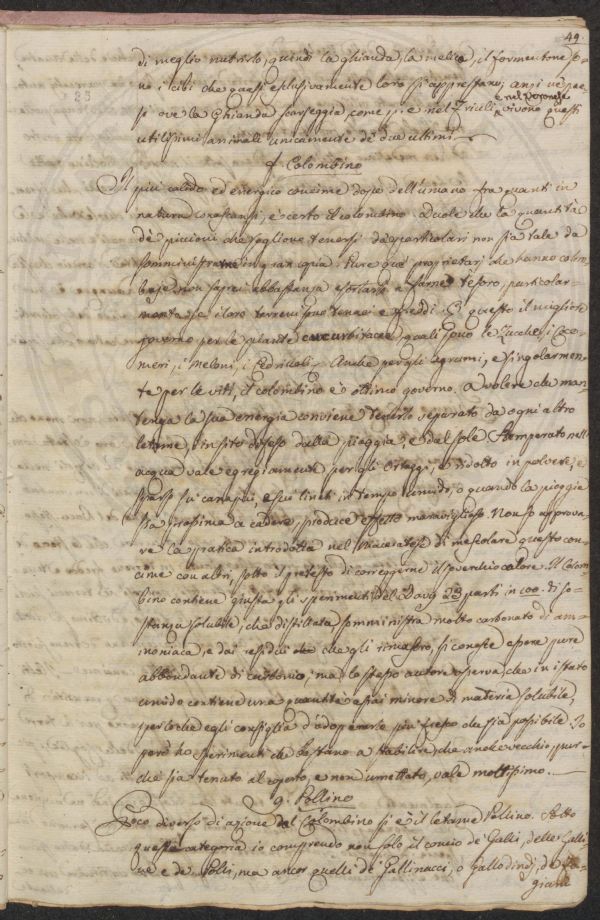 49
di meglio nutrirlo, quindi la ghianda, la mellica, il formentone so-
no i cibi che quasi esclusivamente loro si apprestano; anzi ne' pae-
e nel Veronese
si ove la Ghianda scarseggia, come si è nel Friuli, vivono questi
utilissimi animali unicamente de' due ultimi.
f. Colombino
Il più calido ed energico concime dopo dell'umano fra quanti in
natura è certo il colombino. Duole che la quantità
de' piccioni che sogliono tenersi da' particolari non sia tale da
somministrarne in gran copia. Pure que' proprietari che hanno colom-
baje non saprei abbastanza esortarli a farne tesoro, particolar-
mente se i loro terreni sono tenaci e freddi. È questo il migliore
governo per le piante cucurbitacee, quali sono le Zucche, i Coco-
meri, i Meloni, i Cedriuoli. Anche per gli Agrumi, e singolarmen-
te per le viti, il colombino è ottimo governo. A volere che man-
tenga la sua energia conviene tenerlo separato da ogni altro
letame, in sito difeso dalla pioggia, e dal sole. Stemperato nell'
acqua vale egregiamente per gli Ortaggi, e ridotto in polvere, e
sparso su' canapai e sui lineti in tempo umido, o quando la pioggia
sia prossima a cadere, produce effetto maraviglioso. Non so approva-
re la pratica introdotta nel Maceratese di mescolare questo con-
cime con altri, sotto il pretesto di correggerne il soverchio calore. Il Colom-
bino contiene giusta gli sperimenti del Davy 23 parti in 100. di so-
stanza solubile, che distillata somministra molto carbonato di am-
moniaca, e dai residui che gli rimasero, si conosce essere pure
abbondante di carbonio; ma lo stesso autore osserva, che in istato
umido contiene una quantità assai minore di materia solubile,
perloche egli consiglia d'adoperarlo più fresco che sia possibile. Io
però ho sperimenti che bastano a stabilire, che anche vecchio, pur-
che sia tenuto al coperto, e non umettato, vale moltissimo.
g. Pollino
Poco diverso di azione dal Colombino si è il letame Pollino. Sotto
questa categoria io comprendo non solo il concio de' Galli, delle Galli-
ne e de' Polli, ma ancor quelli de' Gallinacci, o Gallodindi, de' Fa-
giani